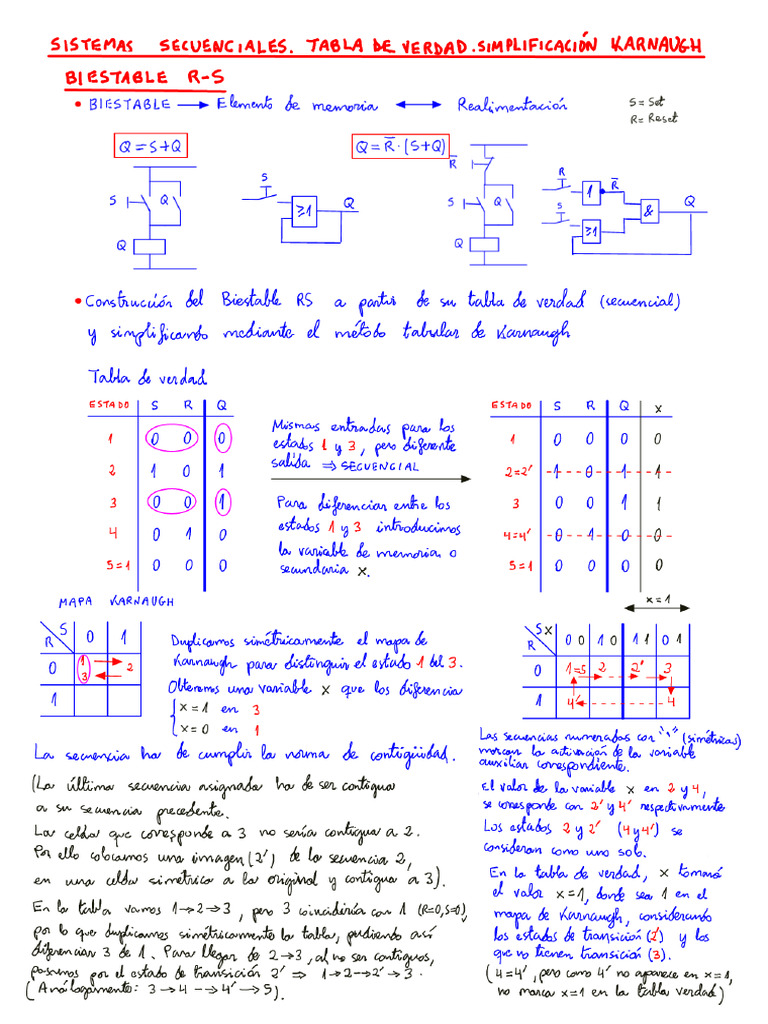 SISTEMAS SECUENCIALES. TABLA DE VERDAD. SIMPLIFICACIÓN KARNAUGH
BIESTABLE R-S
• BIESTABLE → Elemento de memoria ↔ Realimentación
S = Set
R = Reset
Q = S+Q
Q = R̅·(S+Q)
S
Q
Q
S
≥1
Q
R̅
S
Q
Q
R
1
R̅
S
≥1
&
Q
• Construcción del Biestable RS a partir de su tabla de verdad (secuencial)
y simplificando mediante el método tabular de Karnaugh
Tabla de verdad
ESTADO S R Q
1 0 0 0
2 1 0 1
3 0 0 1
4 0 1 0
5=1 0 0 0
Mismas entradas para los
estados 1 y 3, pero diferente
salida ⇒ SECUENCIAL
Para diferenciar entre los
estados 1 y 3 introducimos
la variable de memoria o
secundaria x.
ESTADO S R Q x
1 0 0 0 0
2=2' 1 0 1 1
3 0 0 1 1
4=4' 0 1 0 0
5=1 0 0 0 0
x=1
MAPA KARNAUGH
S
R
0 1
0 1 2
3
1
Duplicamos simétricamente el mapa de
Karnaugh para distinguir el estado 1 del 3.
Obtenemos una variable x que los diferencia
{ x=1 en 3
x=0 en 1
La secuencia ha de cumplir la norma de contigüidad.
(La última secuencia asignada ha de ser contigua
a su secuencia precedente.
La celda que corresponde a 3 no sería contigua a 2.
Por ello colocamos una imagen (2') de la secuencia 2,
en una celda simétrica a la original y contigua a 3).
En la tabla vamos 1→2→3, pero 3 coincidiría con 1 (R=0,S=0),
por lo que duplicamos simétricamente la tabla, pudiendo así
diferenciar 3 de 1. Para llegar de 2→3, al no ser contiguos,
pasamos por el estado de transición 2' ⇒ 1→2→2'→3.
(Análogamente: 3→4-→4'→5).
Sx
R
00 10 11 01
0 1=5 2 2' 3
1 4' 4
Las secuencias numeradas con "'" (simétricas)
marcan la activación de la variable
auxiliar correspondiente.
El valor de la variable x en 2 y 4,
se corresponde con 2' y 4' respectivamente
Los estados 2 y 2' (4 y 4') se
consideran como uno solo.
En la tabla de verdad, x tomará
el valor x=1, donde sea 1 en el
mapa de Karnaugh, considerando
los estados de transición (2') y los
que no tienen transición (3).
(4=4', pero como 4' no aparece en x=1,
no marca x=1 en la tabla verdad)